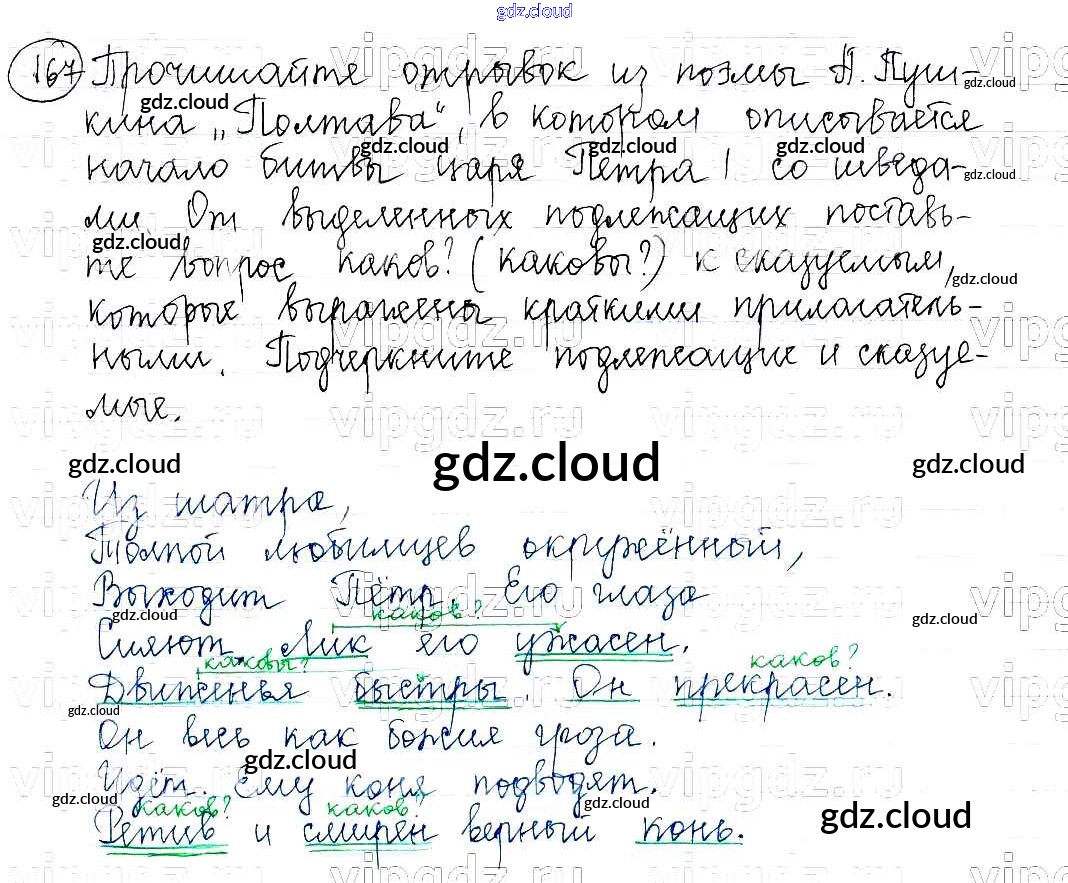 gdz.cloud
167 Прочитайте отрывок из поэмы А. Пуш-
кина „Полтава“, в котором описывается
начало битвы царя Петра I со шведа-
ми. От выделенных подлежащих поставь-
те вопрос каков? (каковы?) к сказуемым,
которые выражены краткими прилагатель-
ными. Подчеркните подлежащие и сказуе-
мые.
gdz.cloud gdz.cloud gdz.cloud
Из шатра,
Толпой любимцев окружённый,
Выходит Пётр. Его глаза
каков?
Сияют. Лик его ужасен.
каковы? каков?
Движенья быстры. Он прекрасен.
Он весь как божия гроза.
Идёт. Ему коня подводят.
каков? каков?
Ретив и смирен верный конь.
gdz.cloud